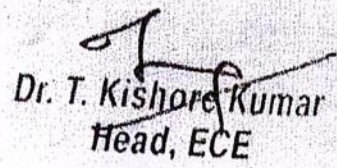 Dr. T. Kishore Kumar
Head, ECE